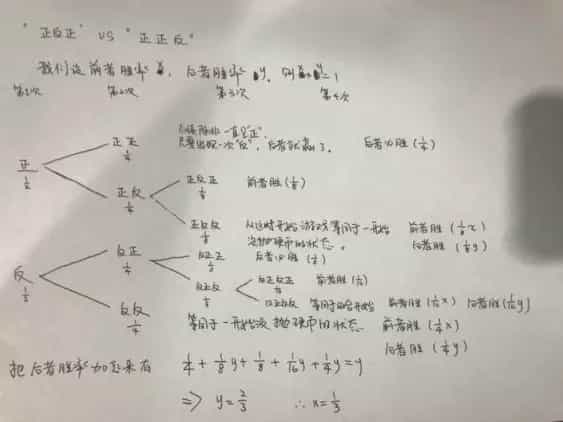 "正反正" VS "正正反"
我们设前者胜率x, 后者胜率y, 则x+y=1
第1次 第2次 第3次 第4次
正正 1/4 只要出现一次"反", 后者就赢了, 后者必胜 (1/4)
正 1/2
正反 1/4 正反正 1/8 前者胜 (1/8)
正反反 1/8 从这时开始游戏等同于一开始 前者胜 (1/8 x)
没抛硬币的状态。 后者胜 (1/8 y)
反正 1/4 反正正 1/8 后者必胜 (1/8)
反 1/2
反正反 1/8 反正反正 1/16 前者胜 (1/16)
反正反反 等同于 开始 前者胜 (1/16 x) 后者胜 (1/16 y)
反反 1/4 等同于一开始没抛硬币的状态 前者胜 (1/4 x)
后者胜 (1/4 y)
把后者胜率加起来有 1/4 + 1/8 y + 1/8 + 1/16 y + 1/4 y = y
=> y = 2/3 ∴ x = 1/3